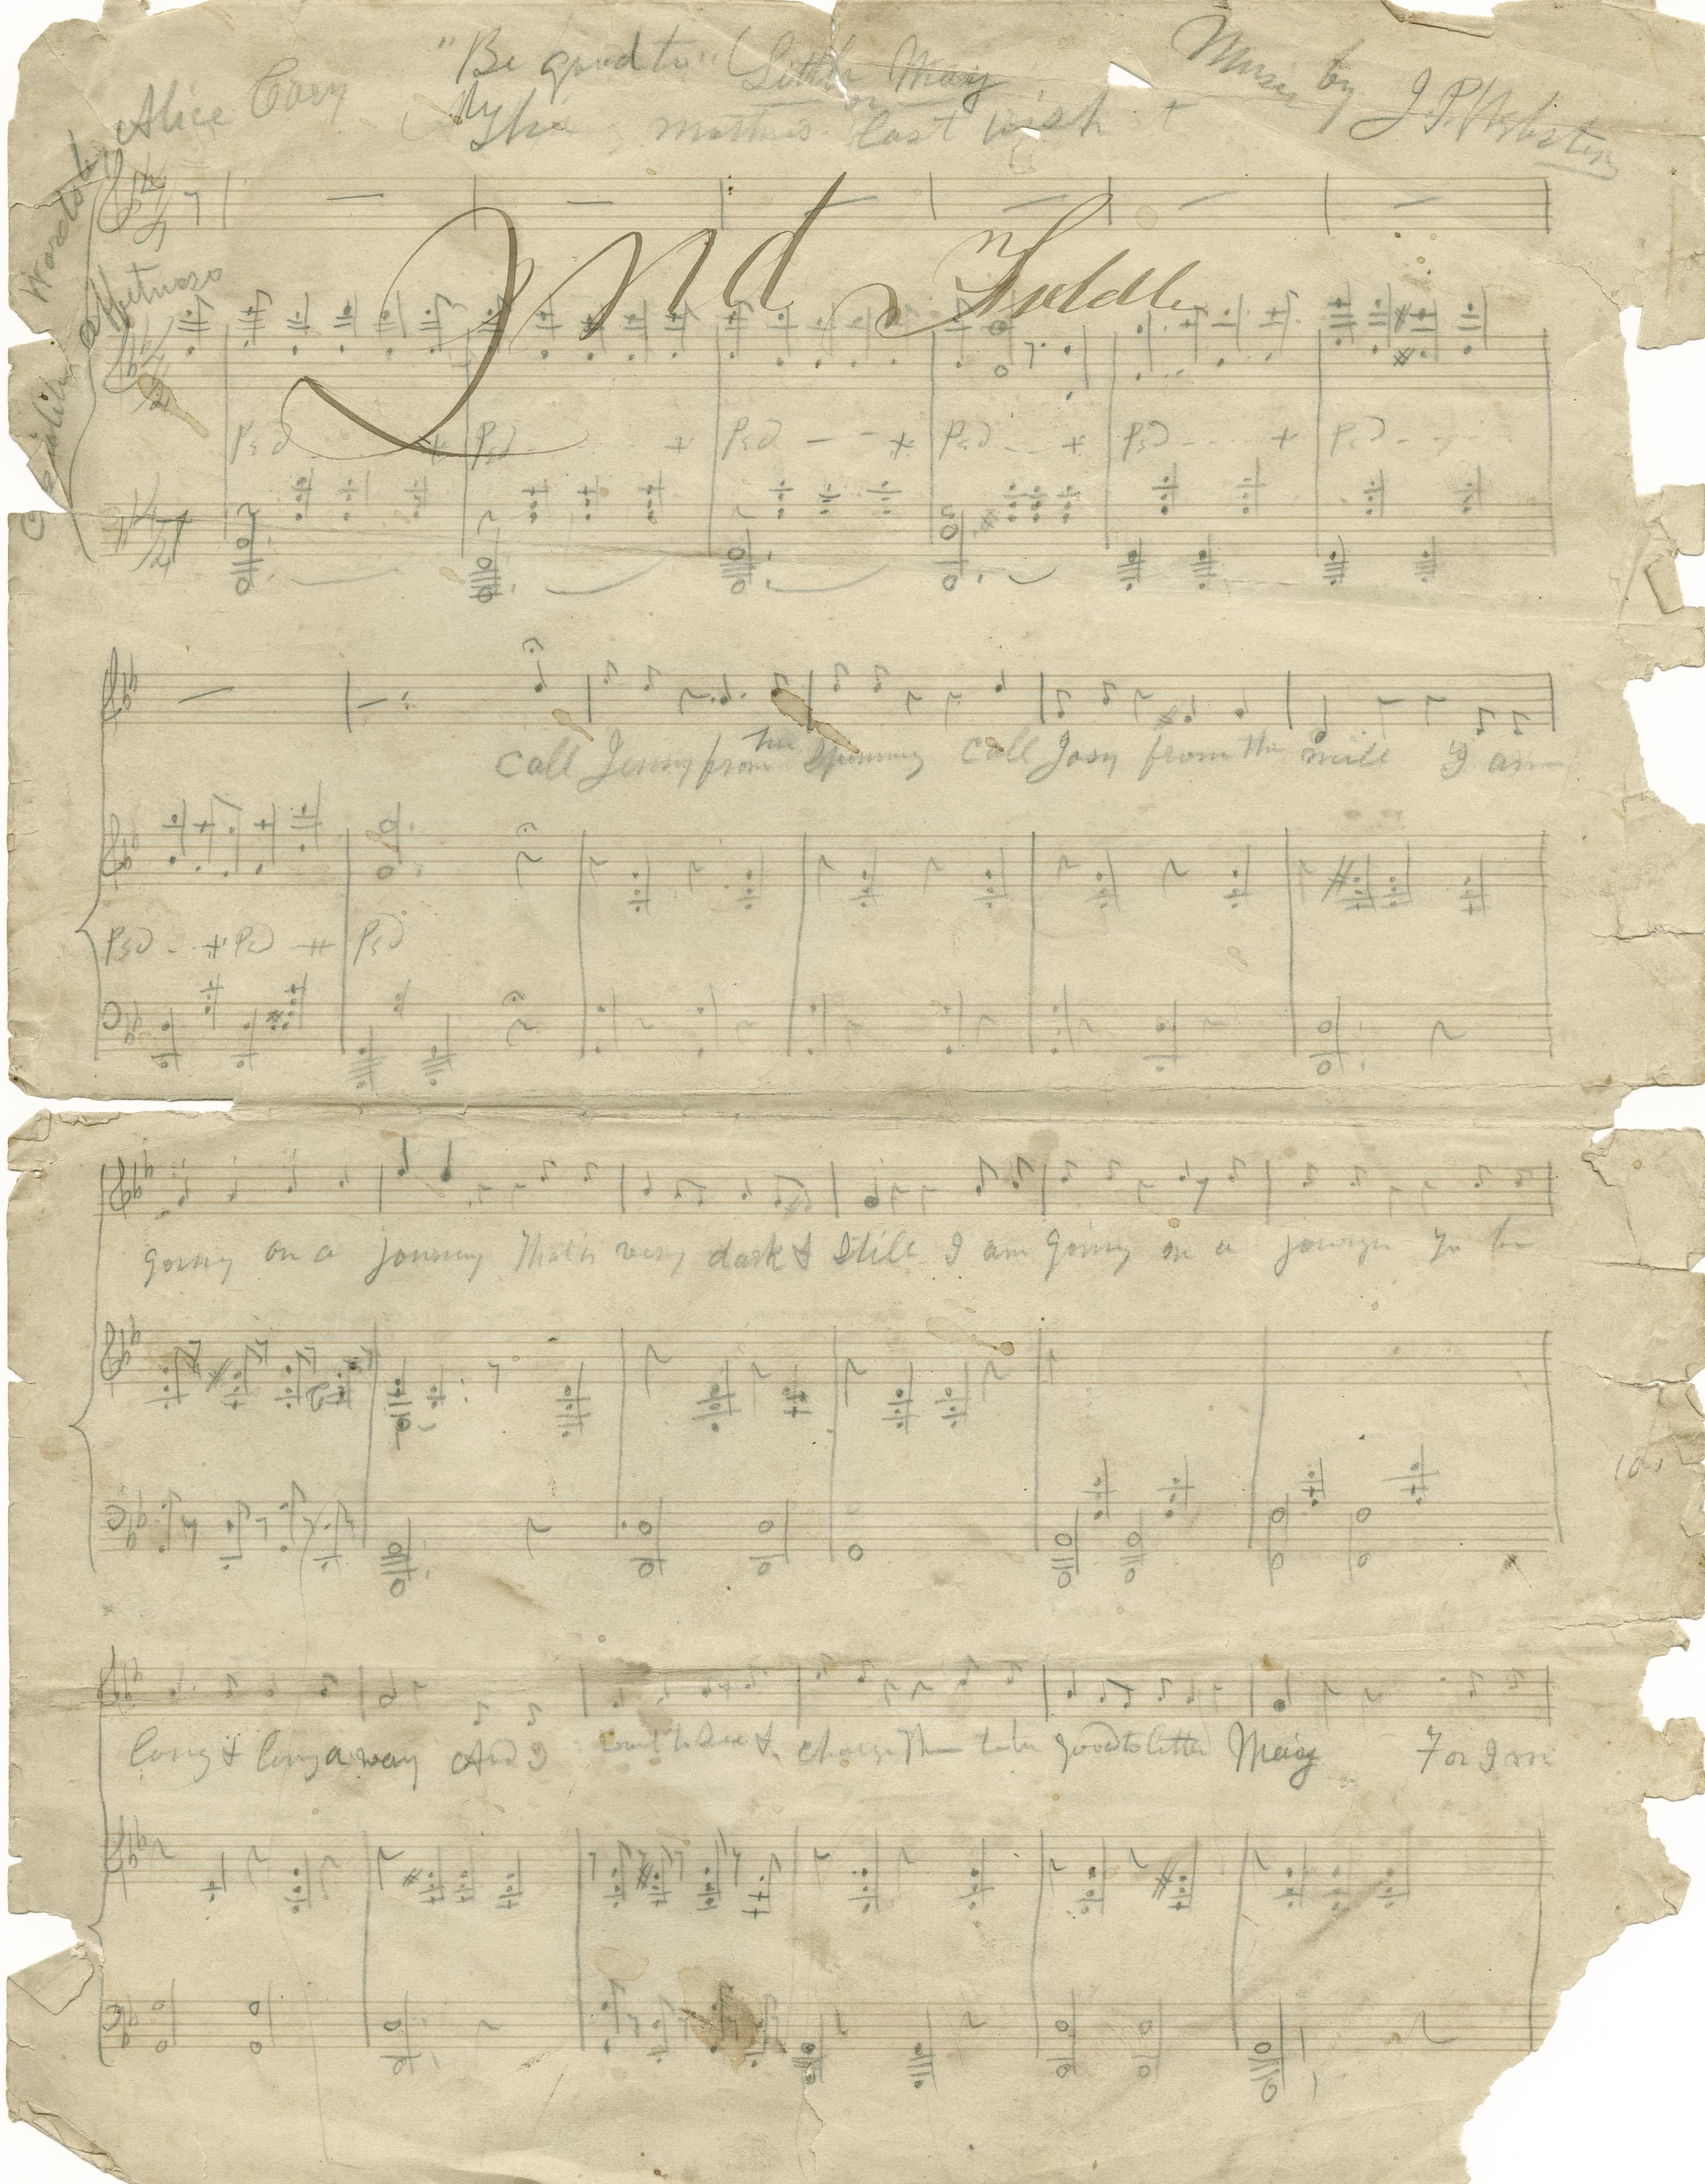 "Be good to" (Little May
Music by J P Webster
Words by Alice Cary
My mother's last wish
affetuoso
2nd Fiddle
Ped + Ped + Ped + Ped + Ped + Ped
Call Jenny from the Spinning Call Josy from the mill I am
Ped + Ped + Ped
going on a journey That is very dark & Still I am going on a journey To be
long & long away And I want to charge them to be good to little May For I am